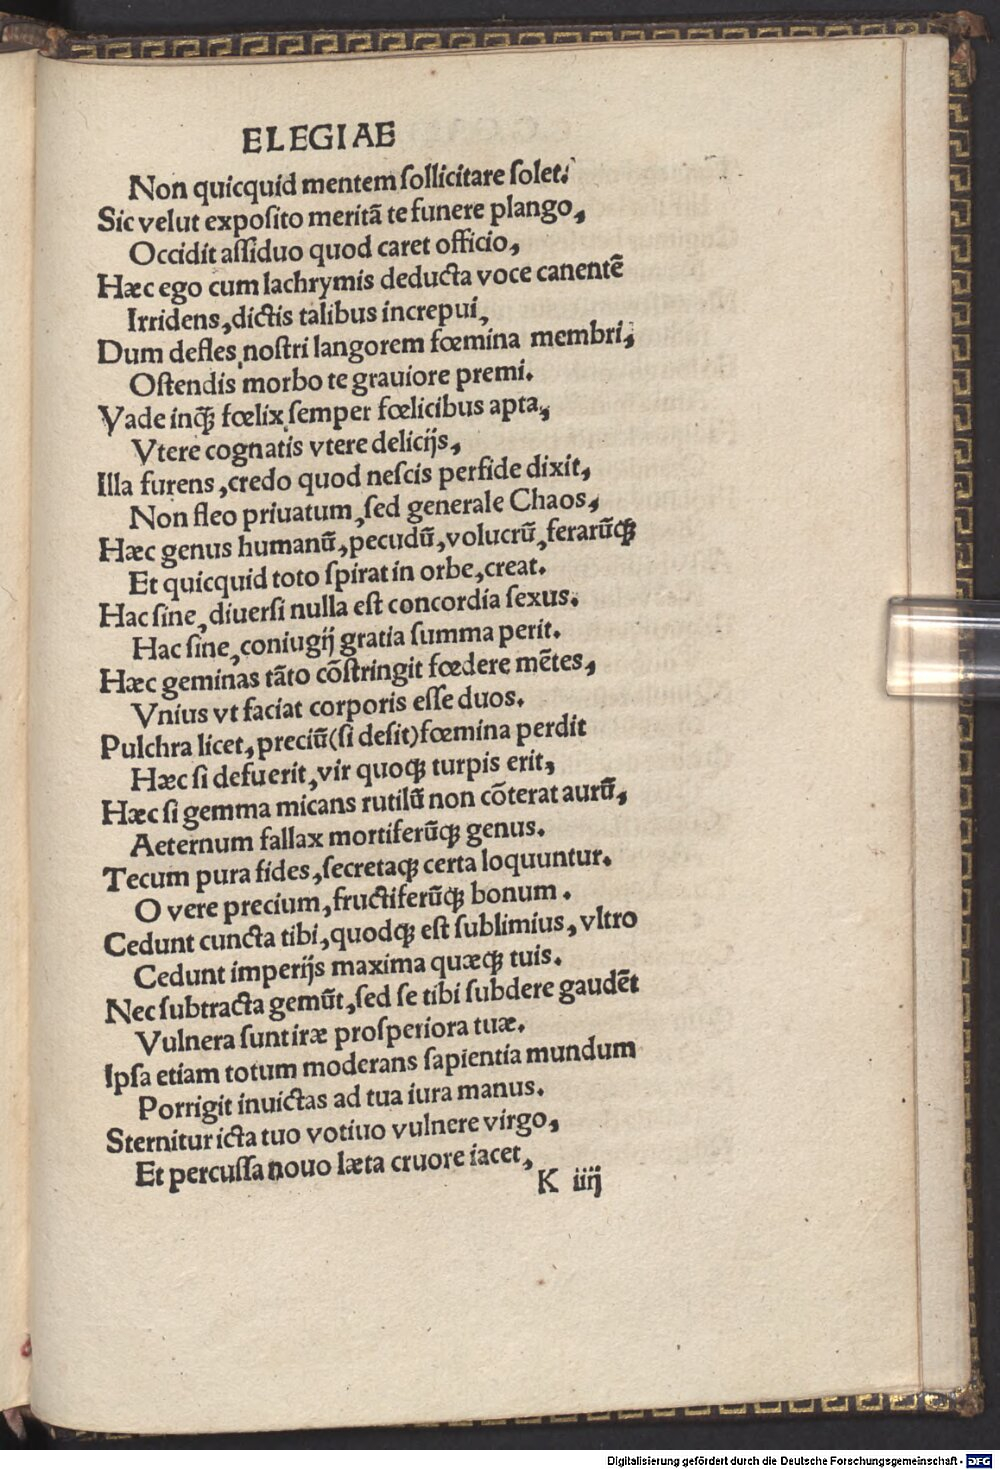 ELEGIAE
Non quicquid mentem ſollicitare ſolet:
Sic velut expoſito meritā te funere plango,
Occidit aſſiduo quod caret officio,
Hæc ego cum lachrymis deducta voce canentē
Irridens, dictis talibus increpui,
Dum defles noſtri langorem fœmina membri,
Oſtendis morbo te grauiore premi.
Vade inqꝫ fœlix ſemper fœlicibus apta,
Vtere cognatis vtere delicijs,
Illa furens, credo quod neſcis perfide dixit,
Non fleo priuatum, ſed generale Chaos,
Hæc genus humanū, pecudū, volucrū, ferarūqꝫ
Et quicquid toto ſpirat in orbe, creat.
Hac ſine, diuerſi nulla eſt concordia ſexus.
Hac ſine, coniugij gratia ſumma perit.
Hæc geminas tāto cōſtringit fœdere mētes,
Vnius vt faciat corporis eſſe duos.
Pulchra licet, preciū (ſi deſit) fœmina perdit
Hæc ſi defuerit, vir quoqꝫ turpis erit,
Hæc ſi gemma micans rutilū non cōterat aurū,
Aeternum fallax mortiferūqꝫ genus.
Tecum pura fides, ſecretaqꝫ certa loquuntur.
O vere precium, fructiferūqꝫ bonum.
Cedunt cuncta tibi, quodqꝫ eſt ſublimius, vltro
Cedunt imperijs maxima quæqꝫ tuis.
Nec ſubtracta gemūt, ſed ſe tibi ſubdere gaudēt
Vulnera ſunt iræ proſperiora tuæ.
Ipſa etiam totum moderans ſapientia mundum
Porrigit inuictas ad tua iura manus.
Sternitur icta tuo votiuo vulnere virgo,
Et percuſſa nouo læta cruore iacet,
K iiij
Digitalisierung gefördert durch die Deutsche Forschungsgemeinschaft - DFG